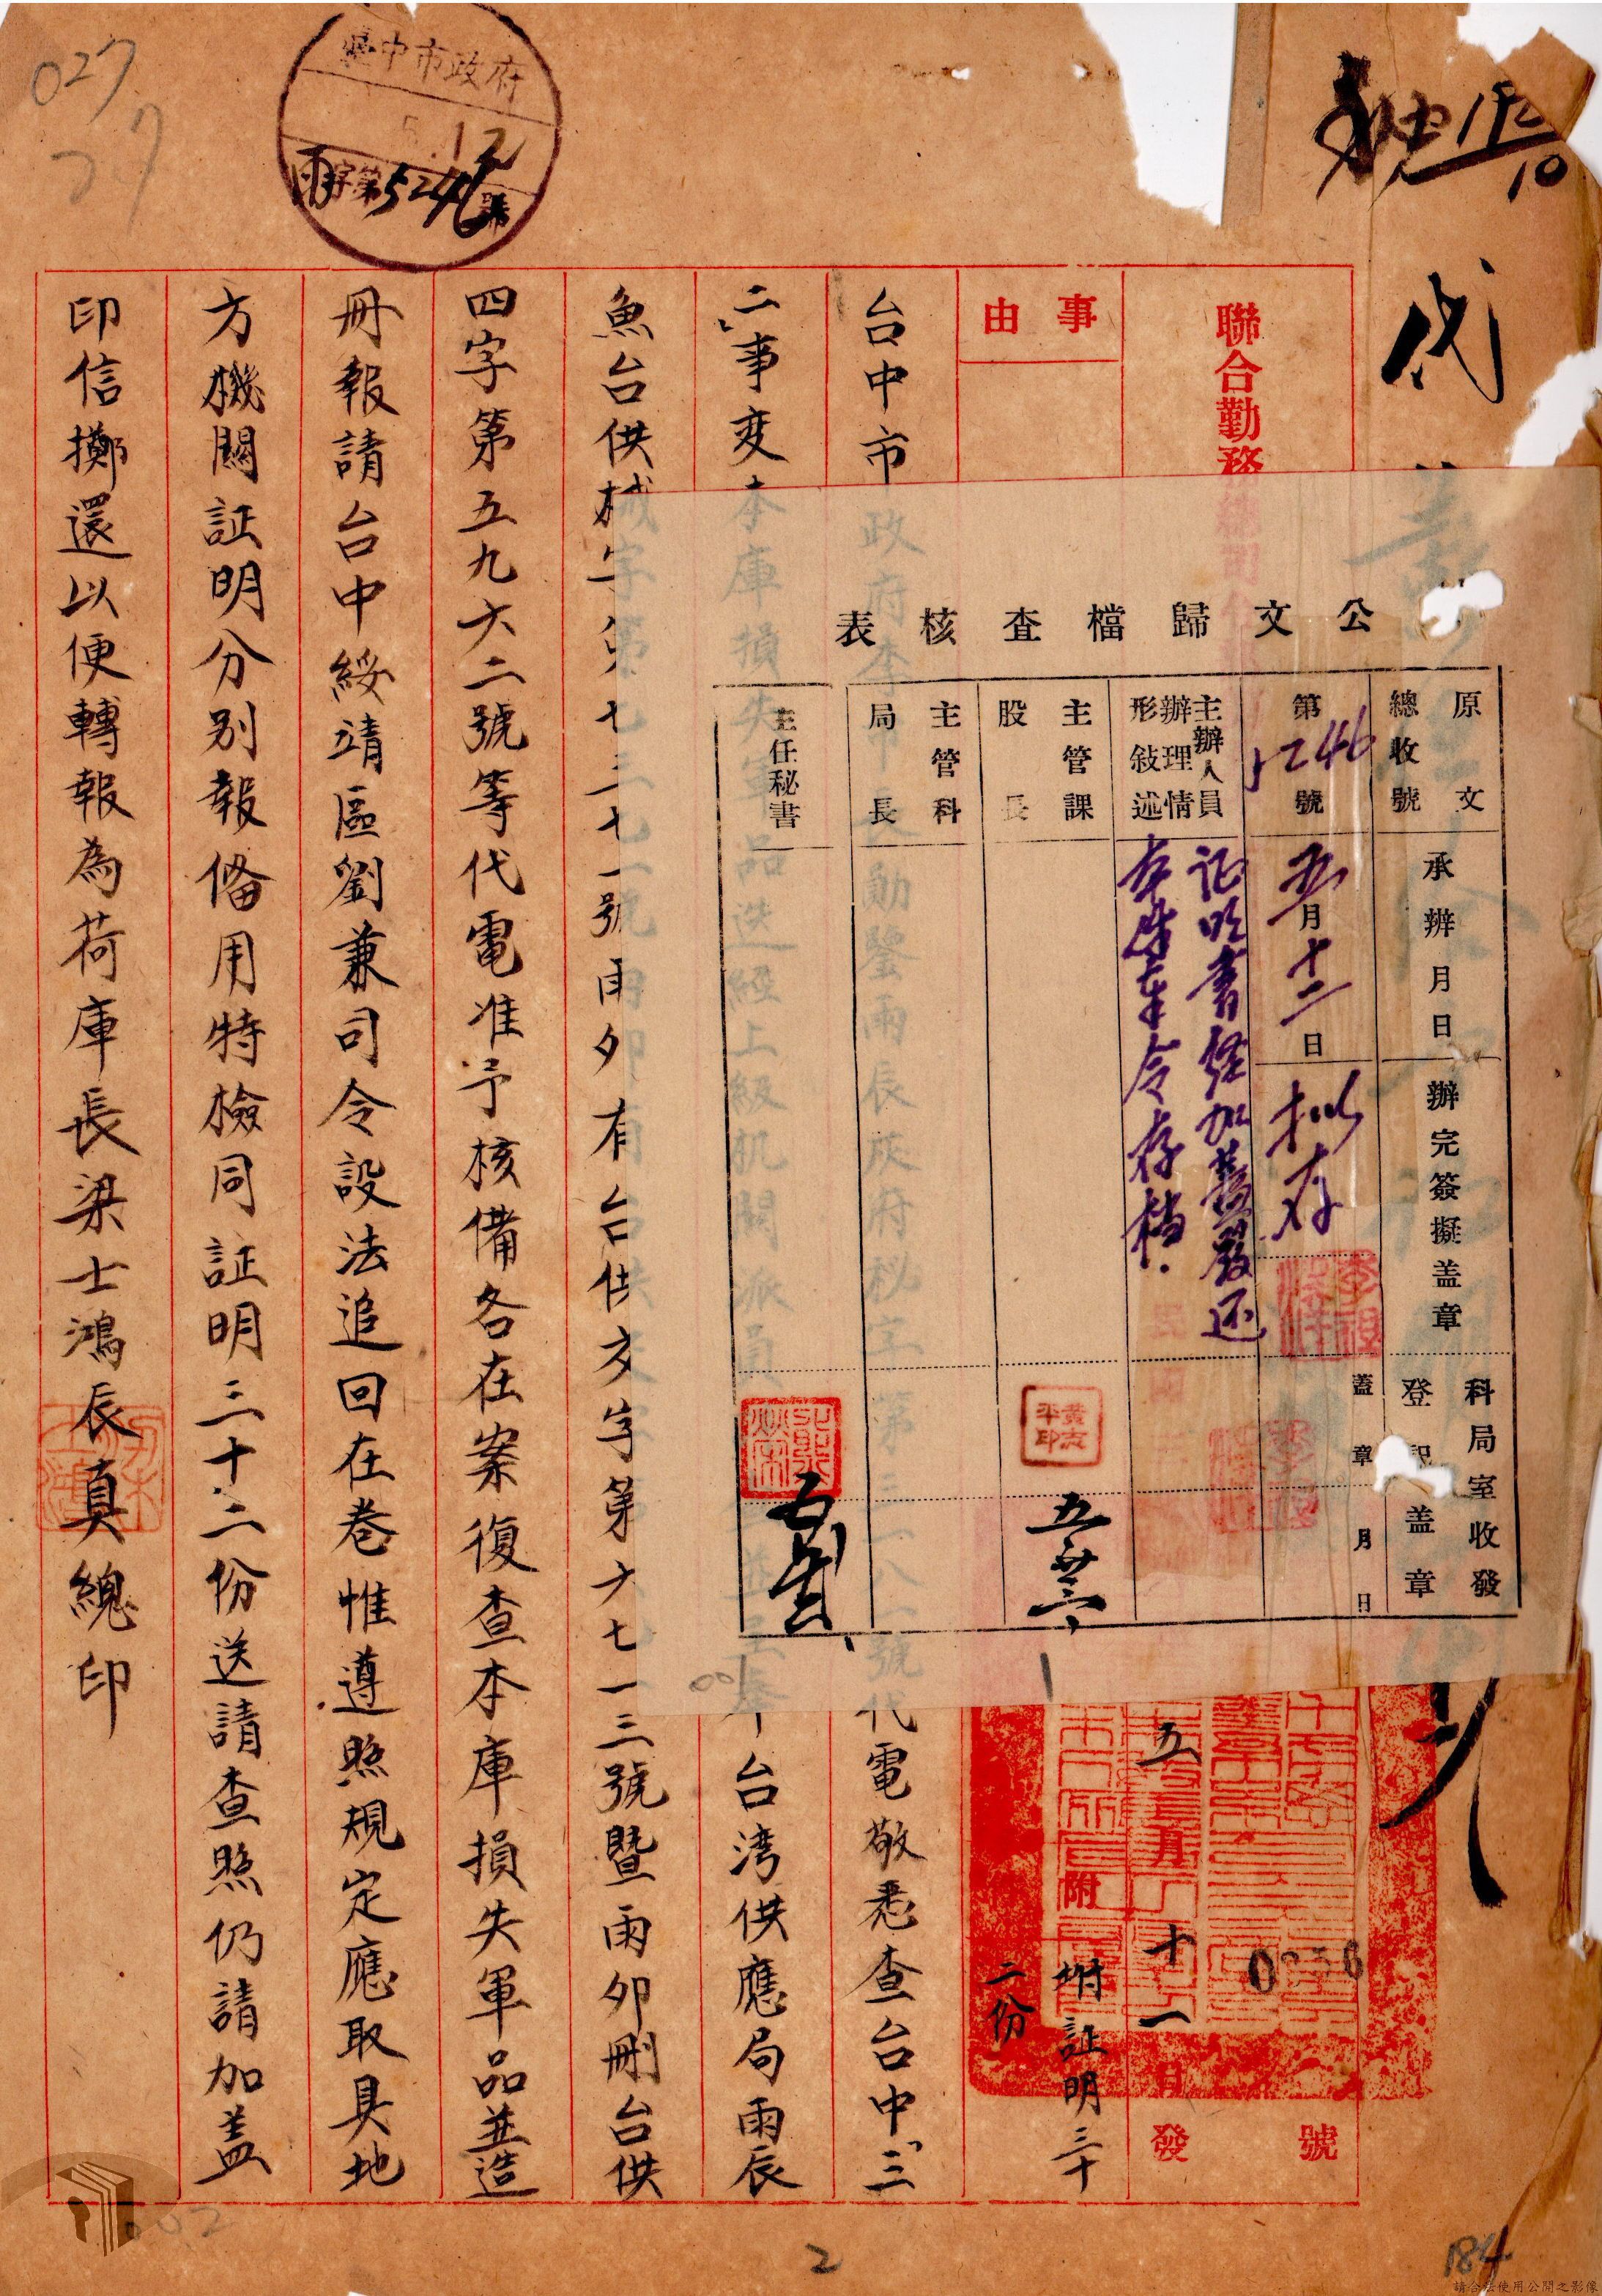 027
27
臺中市政府
5.12
雨字第5246號
代電
聯合勤務總司令
事由
台中市政府李市長勛鑒雨辰灰府秘字第三二八一號代電敬悉查台中「三
二」事变本庫損失軍品迭經上級机關派員
奉台湾供應局雨辰
魚台供械字第七三七一號雨夕有台供交字第六七一三號暨雨卯刪台供
四字第五九六二號等代電准予核備各在案復查本庫損失軍品並造
冊報請台中綏靖區劉兼司令設法追回在卷惟遵照規定應取具地
方機關証明分別報俻用特檢同証明三十二份送請查照仍請加蓋
印信擲還以便轉報為荷庫長梁士鴻辰真總印
公文歸檔查核表
原文總收號
第5246號
承辦月日
五月十二日
辦完簽擬盖章
拟存
科局室收發登記盖章
蓋章 月 日
主辦人員辦理情形敍述
証明書經加蓋發还
本件奉令存档.
主管課股長
黃志平印
五廿三
主管科局長
主任秘書
001
五月十一日發
附
坿証明三十
二份
號
002
2
184
請合法使用公開之影像